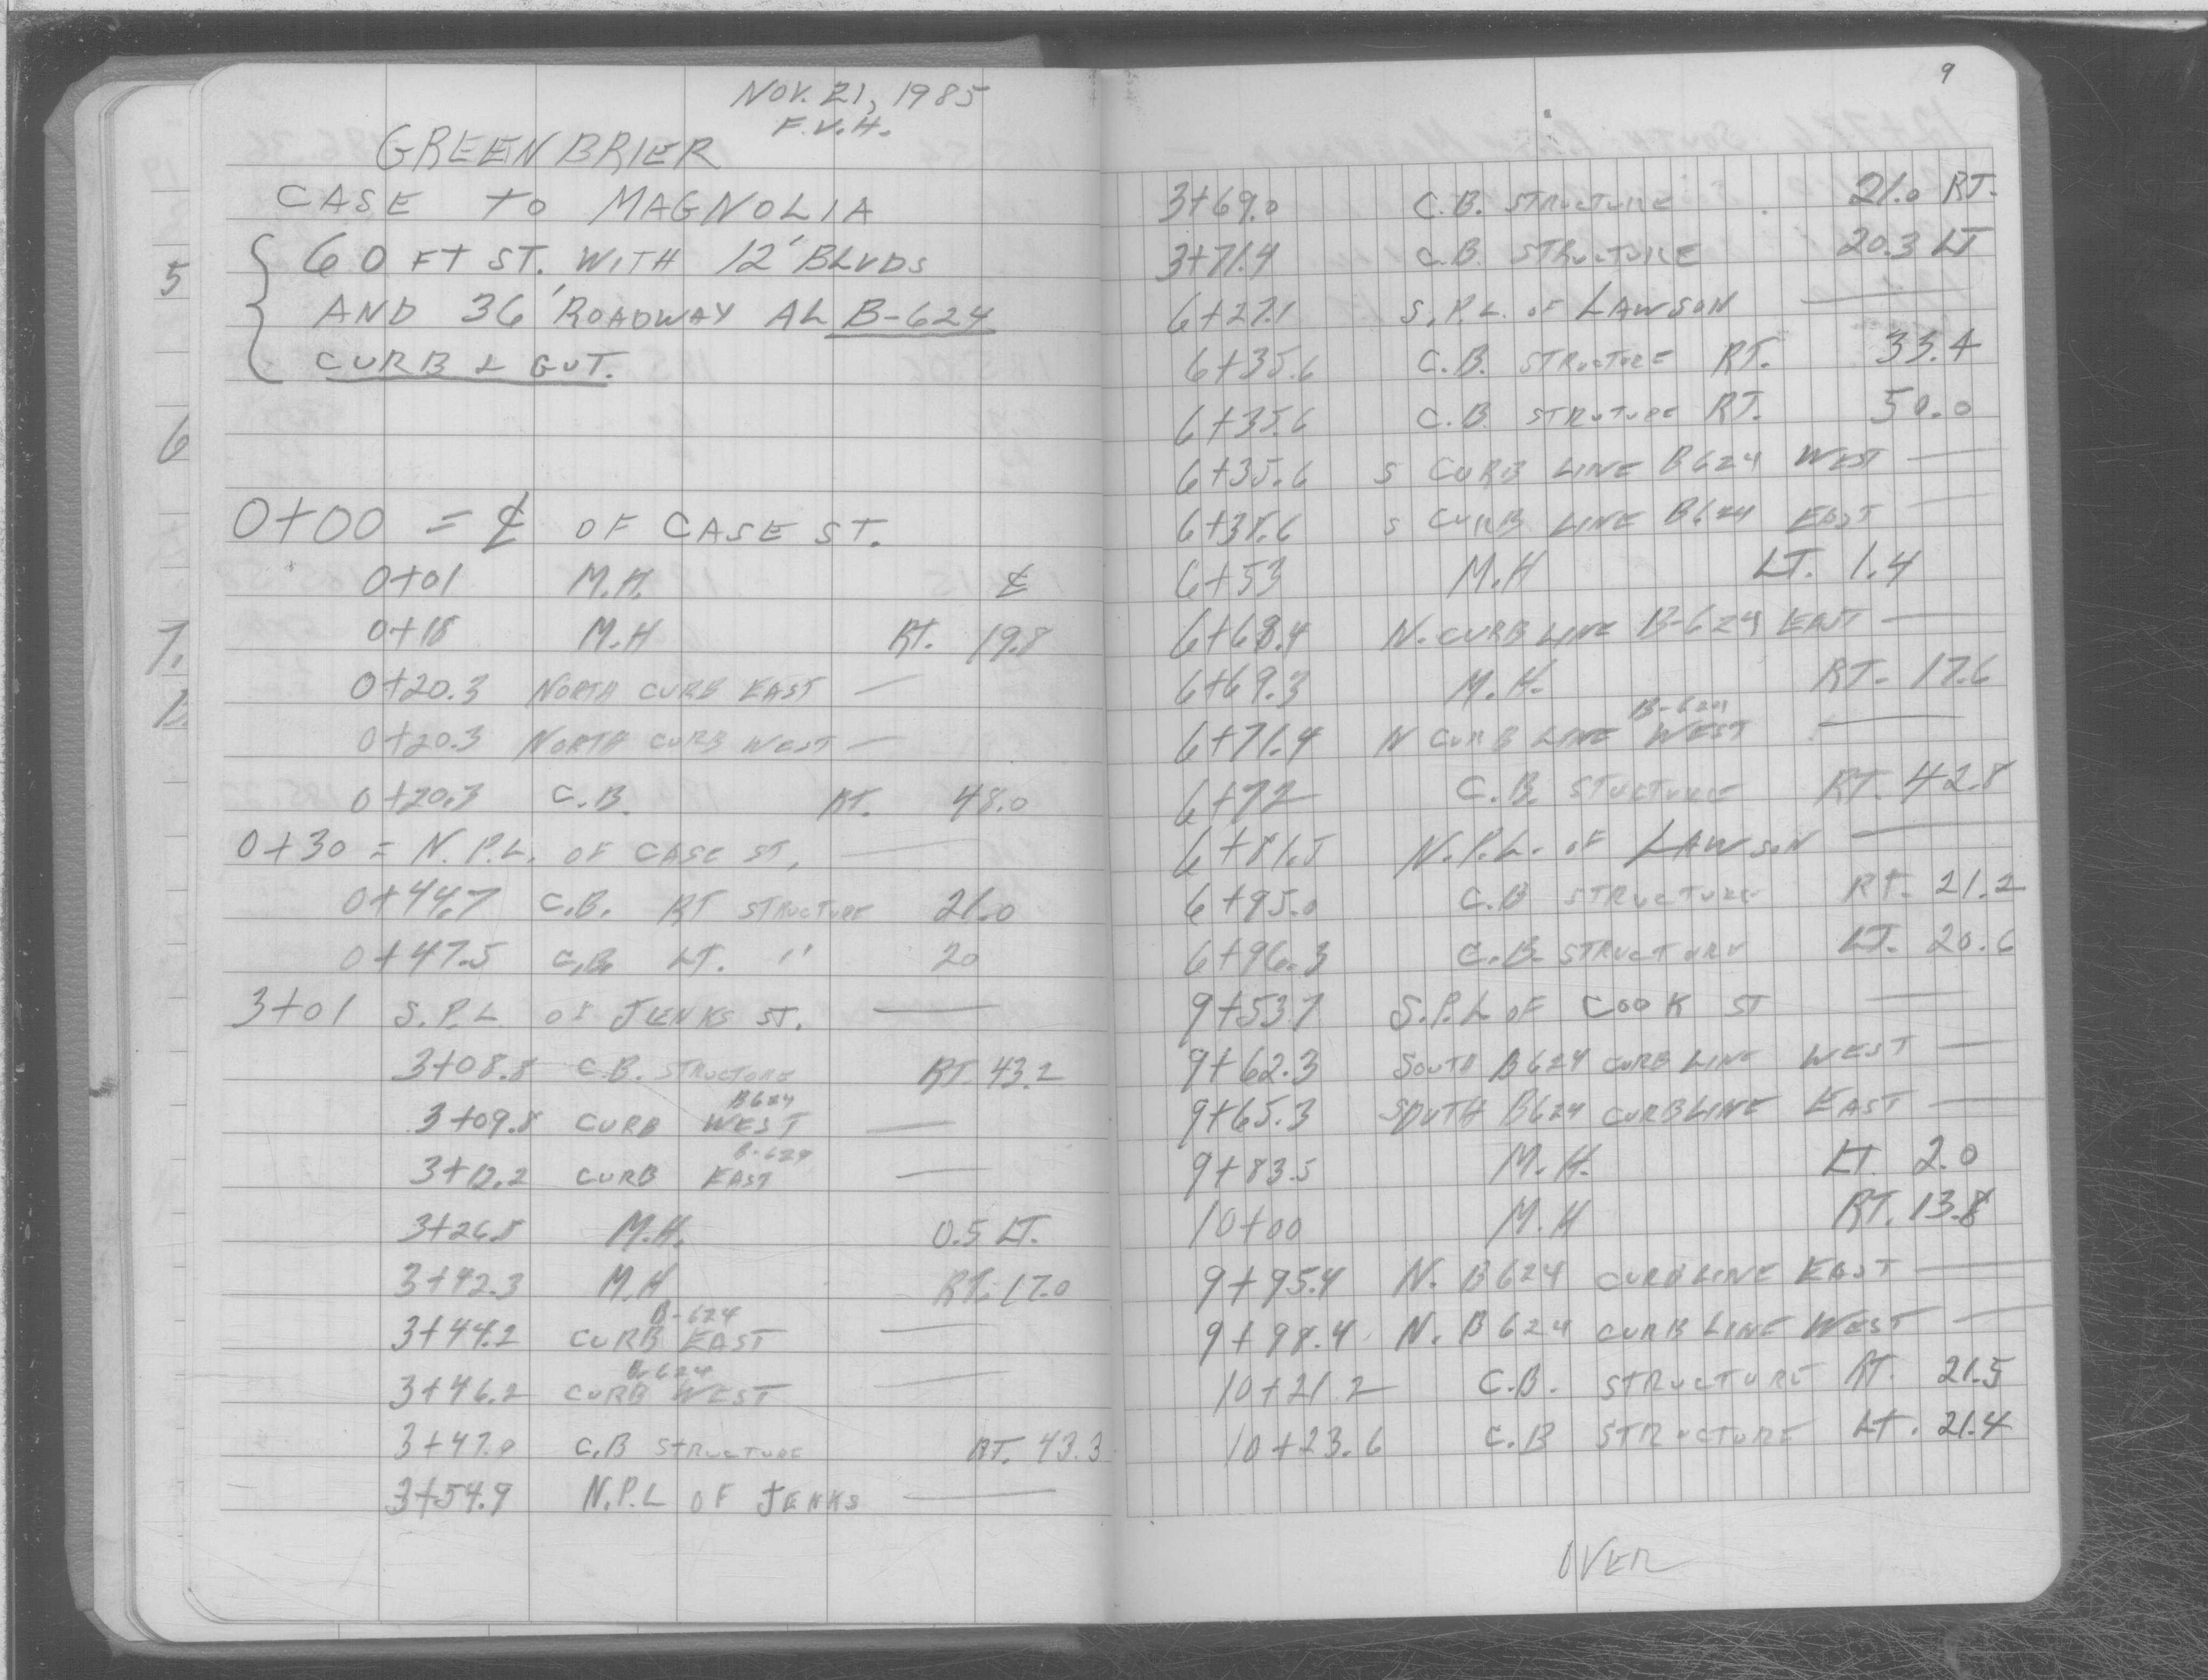 NOV. 21, 1985
F.V.H.
GREENBRIER
CASE to MAGNOLIA
60 FT ST. WITH 12' BLVDS
AND 36' ROADWAY AL B-624
CURB & GUT.
5
6
7.
0+00 = ₵ OF CASE ST.
0+01 M.H. ₵
0+18 M.H RT. 19.8
0+20.3 NORTH CURB EAST —
0+20.3 NORTH CURB WEST —
0+20.3 C.B. RT. 48.0
0+30 = N.P.L. OF CASE ST. —
0+44.7 C.B. RT STRUCTURE 21.0
0+47.5 C.B. LT. " 20
3+01 S.P.L OF JENKS ST. —
3+08.8 C.B. STRUCTURE RT. 43.2
3+09.8 CURB B624 WEST —
3+12.2 CURB B-624 EAST —
3+26.8 M.H. 0.5 LT.
3+42.3 M.H RT. 17.0
3+44.2 CURB B-624 EAST —
3+46.2 CURB B-624 WEST —
3+47.0 C.B STRUCTURE RT. 43.3
3+54.9 N.P.L OF JENKS —
9
3+69.0 C.B. STRUCTURE 21.0 RT.
3+71.4 C.B. STRUCTURE 20.3 LT
6+27.1 S.P.L. OF LAWSON —
6+35.6 C.B. STRUCTURE RT. 33.4
6+35.6 C.B. STRUTURE RT. 50.0
6+35.6 S CURB LINE B624 WEST —
6+38.6 S CURB LINE B624 EAST —
6+53 M.H LT. 1.4
6+68.4 N. CURB LINE B-624 EAST —
6+69.3 M.H. RT. 17.6
6+71.4 N CURB LINE B-624 WEST —
6+72 C.B. STUCTURE RT. 42.8
6+81.5 N.P.L. OF LAWSON —
6+95.0 C.B STRUCTURE RT. 21.2
6+96.3 C.B. STRUCTURE LT. 20.6
9+53.7 S.P.L OF COOK ST —
9+62.3 SOUTH B624 CURB LINE WEST —
9+65.3 SOUTH B624 CURBLINE EAST —
9+83.5 M.H. LT 2.0
10+00 M.H RT. 13.8
9+95.4 N. B624 CURBLINE EAST —
9+98.4 N. B624 CURB LINE WEST —
10+21.2 C.B. STRUCTURE RT. 21.5
10+23.6 C.B STRUCTURE LT. 21.4
OVER